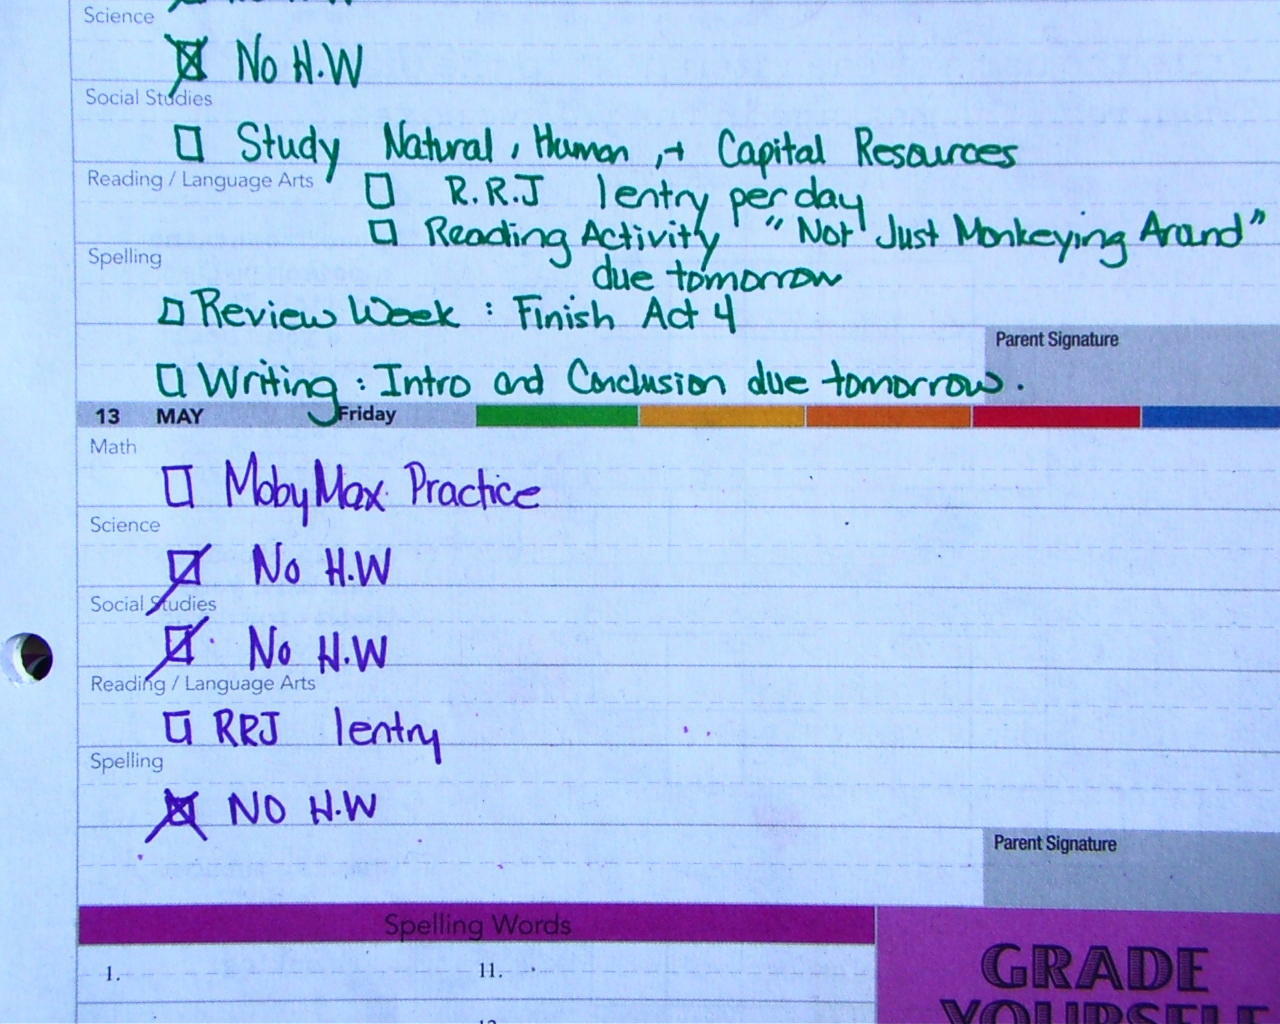 Science
No H.W
Social Studies
Study Natural, Human, + Capital Resources
Reading / Language Arts
R.R.J 1entry per day
Reading Activity "Not Just Monkeying Around"
due tomorrow
Spelling
Review Week : Finish Act 4
Parent Signature
Writing : Intro and Conclusion due tomorrow.
13 MAY Friday
Math
MobyMax Practice
Science
No H.W
Social Studies
No H.W
Reading / Language Arts
RRJ 1entry
Spelling
NO H.W
Parent Signature
Spelling Words
1. 11.
GRADE
YOURSELF